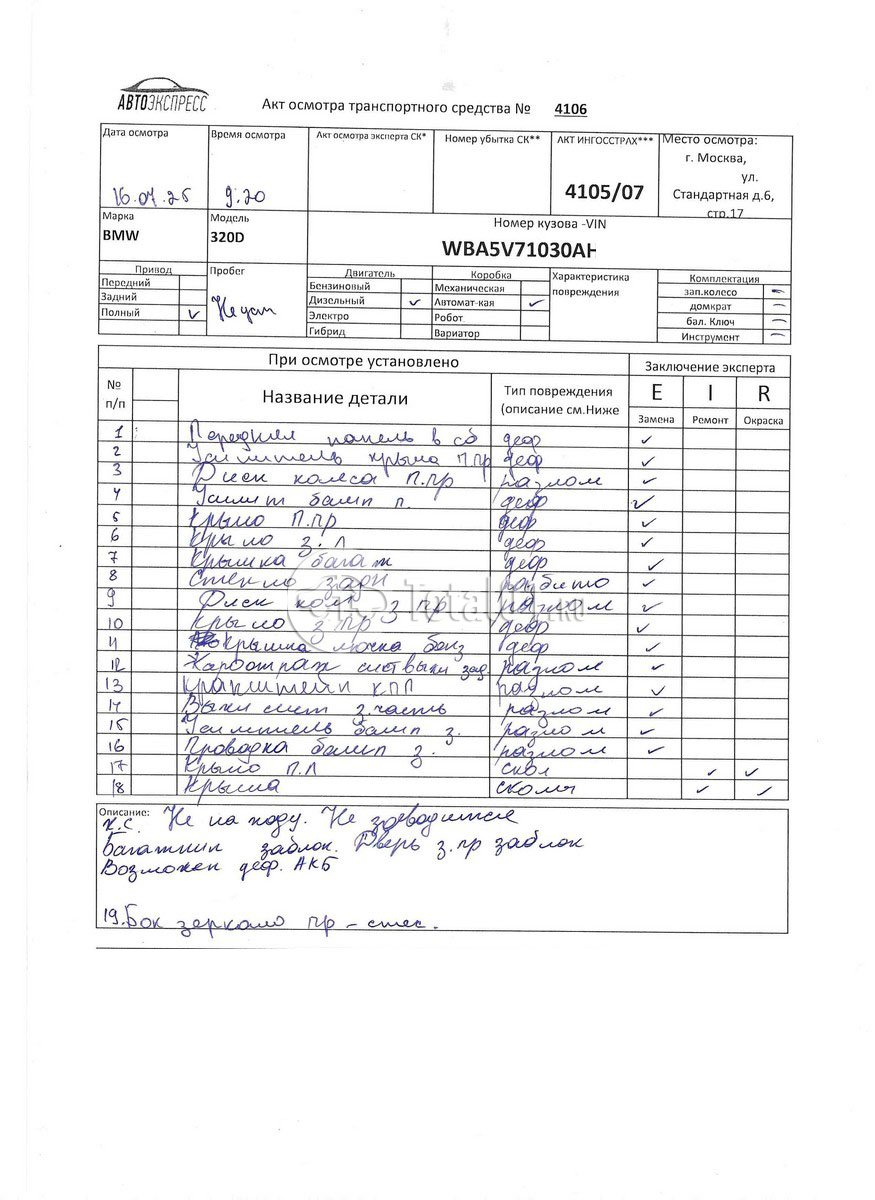 АВТОЭКСПРЕСС
Акт осмотра транспортного средства № 4106
Дата осмотра Время осмотра Акт осмотра эксперта СК* Номер убытка СК** АКТ ИНГОССТРАХ*** Место осмотра:
г. Москва,
ул.
16.07.25 9.20 4105/07 Стандартная д.6,
стр.17
Марка Модель Номер кузова -VIN
BMW 320D WBA5V71030AH
Привод Пробег Двигатель Коробка Характеристика повреждения Комплектация
Передний Бензиновый Механическая зап.колесо –
Задний Дизельный ✓ Автомат-кая ✓ домкрат –
Полный ✓ Не уст Электро Робот бал. Ключ –
Гибрид Вариатор Инструмент –
При осмотре установлено Заключение эксперта
№ п/п Название детали Тип повреждения (описание см.Ниже E I R
Замена Ремонт Окраска
1 Передняя панель в сб деф ✓
2 Усилитель крыла П.пр деф ✓
3 Диск колеса П.пр разлом ✓
4 Усилит бамп п. деф ✓
5 Крыло П.пр деф ✓
6 Крыло з.л деф ✓
7 Крышка багаж деф ✓
8 Стекло задн разбито ✓
9 Диск кол з пр разлом ✓
10 Крыло з пр деф ✓
11 Крышка лючка бенз деф ✓
12 сист выхл зад разлом ✓
13 КПП разлом ✓
14 Выхл сист з.часть разлом ✓
15 Усилитель бамп з. разлом ✓
16 Проводка бамп з. разлом ✓
17 Крыло П.Л скол ✓ ✓
18 Крыша сколы ✓ ✓
Описание:
Х.С. Не на ходу. Не заводится
Багажник заблок. Дверь з.пр заблок
Возможен деф. АКБ
19. Бок зеркало пр – стес.
Total.RU